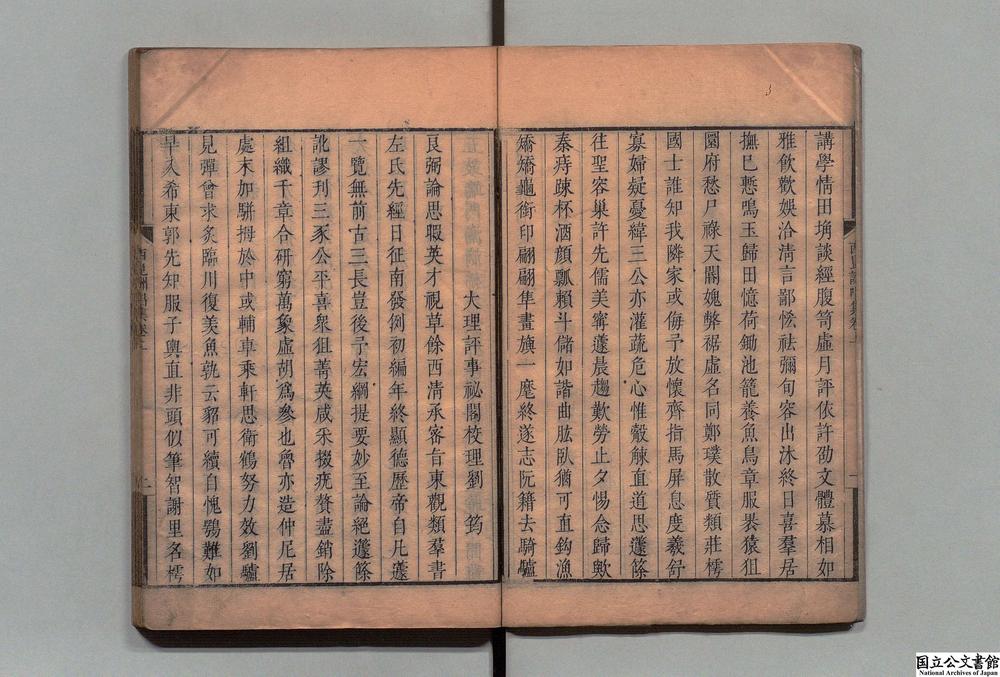 講學情田埆談經腹笥虛月評依許劭文體慕相如
雅飲歡娛洽淸言鄙恡祛彌旬容出沐終日喜羣居
撫巳慙鳴玉歸田憶荷鋤池籠養魚鳥章服裂猿狙
園府愁尸祿天閽媿弊裾虛名同鄭璞散質類莊樗
國士誰知我隣家或侮予放懷齊指馬屏息度羲舒
寡婦疑憂緯三公亦灌蔬危心惟觳觫直道思蘧蒢
往聖容巢許先儒美甯蘧晨趨歎勞止夕惕念歸歟
秦痔疎杯酒顔瓢賴斗儲如諧曲肱臥猶可直鈎漁
矯矯龜銜印翩翩隼畫旟一麾終遂志阮籍去騎驢
大理評事祕閣校理劉筠
良弼論思暇英才視草餘西淸承密旨東觀類羣書
左氏先經日征南發例初編年終顯德歷帝自凡蘧
一覽無前古三長豈後予宏綱提要妙至論絕蘧篨
訛謬刊三豕公平喜衆狙菁英咸采掇疣贅盡銷除
組織千章合硏窮萬象虛胡爲參也魯亦造仲尼居
處末加駢拇於中或輔車乘軒思衛鶴努力效劉驢
見彈曾求炙臨川復羨魚孰云貂可續自愧鶚難如
早入希東郭先知服子輿直非頭似筆智謝里名樗
国立公文書館
National Archives of Japan